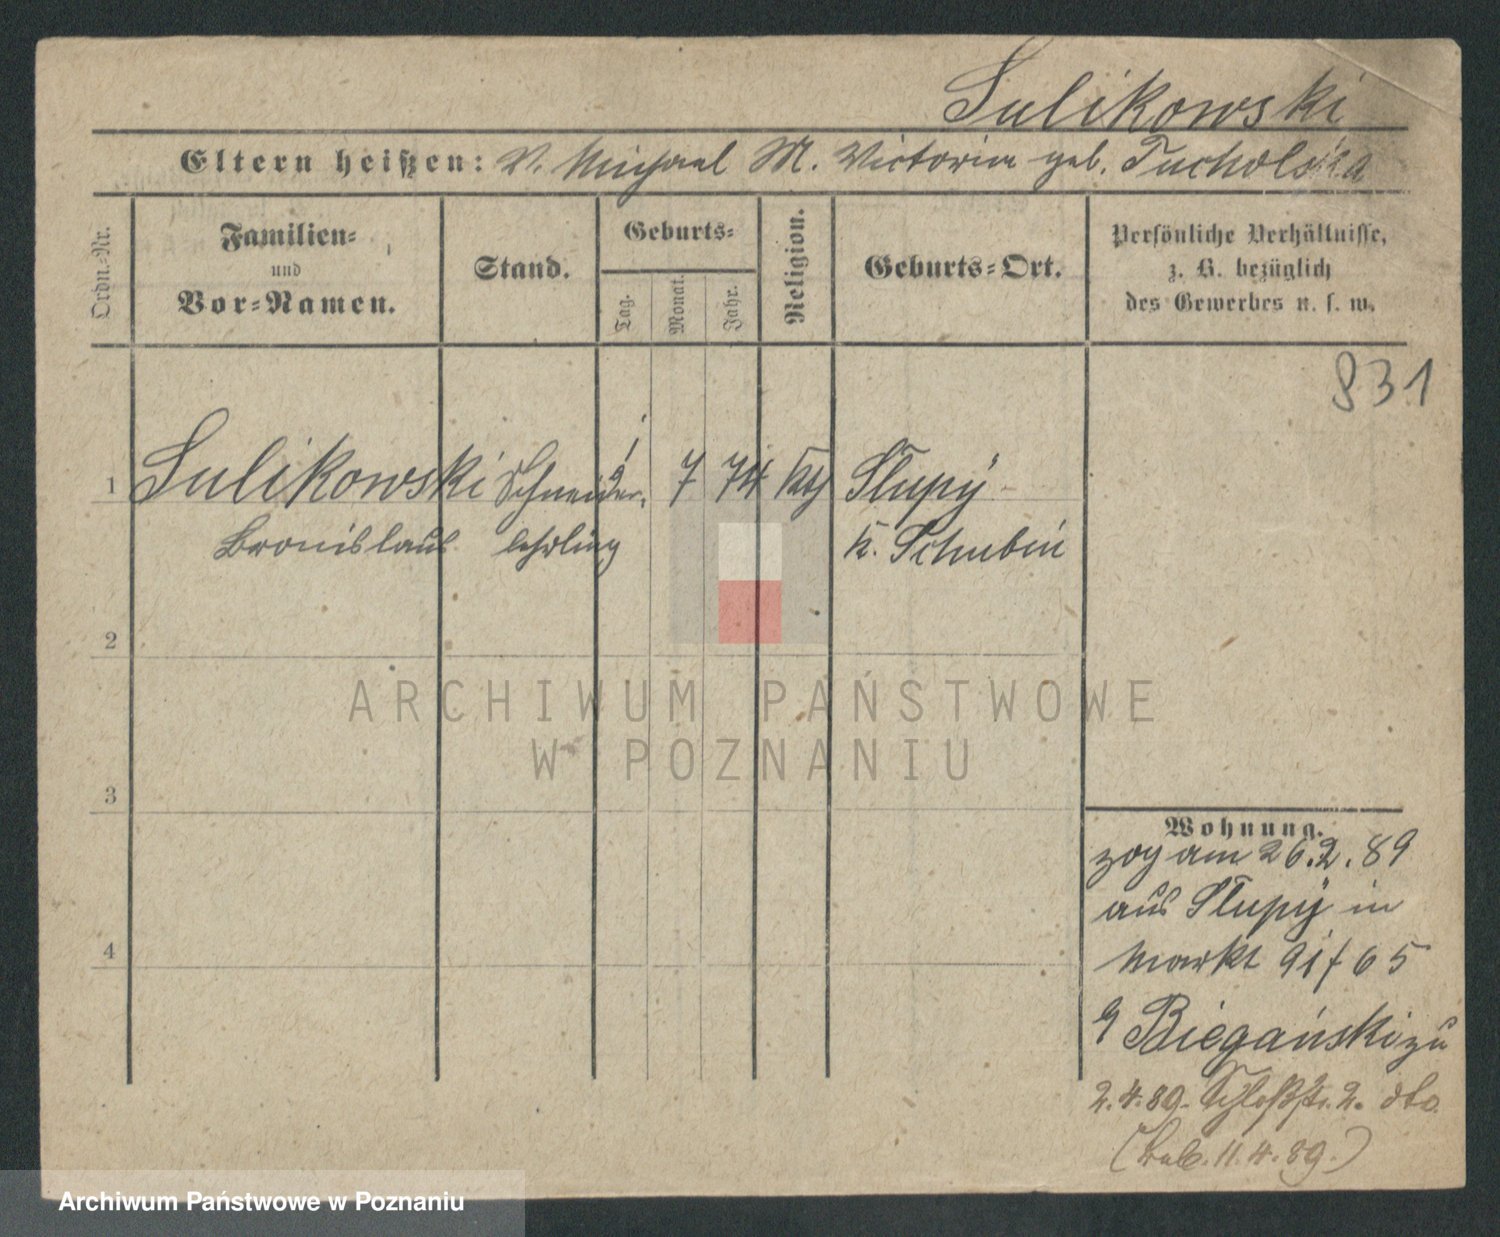 Sulikowski
Eltern heißen: V. Michael M. Victoria geb. Tucholska
Ordn.-Nr.
Familien-
und
Vor-Namen.
Stand.
Geburts-
Tag.
Monat.
Jahr.
Religion.
Geburts-Ort.
Persönliche Verhältnisse,
z. B. bezüglich
des Gewerbes u. s. w.
831
1 Sulikowski Schneider- 7 74 kth Slupy
Bronislaus lehrling K. Schubin
2
ARCHIWUM PAŃSTWOWE
W POZNANIU
3
Wohnung.
zog am 26.2.89
aus Slupy in
Markt 91/65
Biegański zu
4
2.4.89. Schloßstr. 2. dto
11.4.89.)
Archiwum Państwowe w Poznaniu